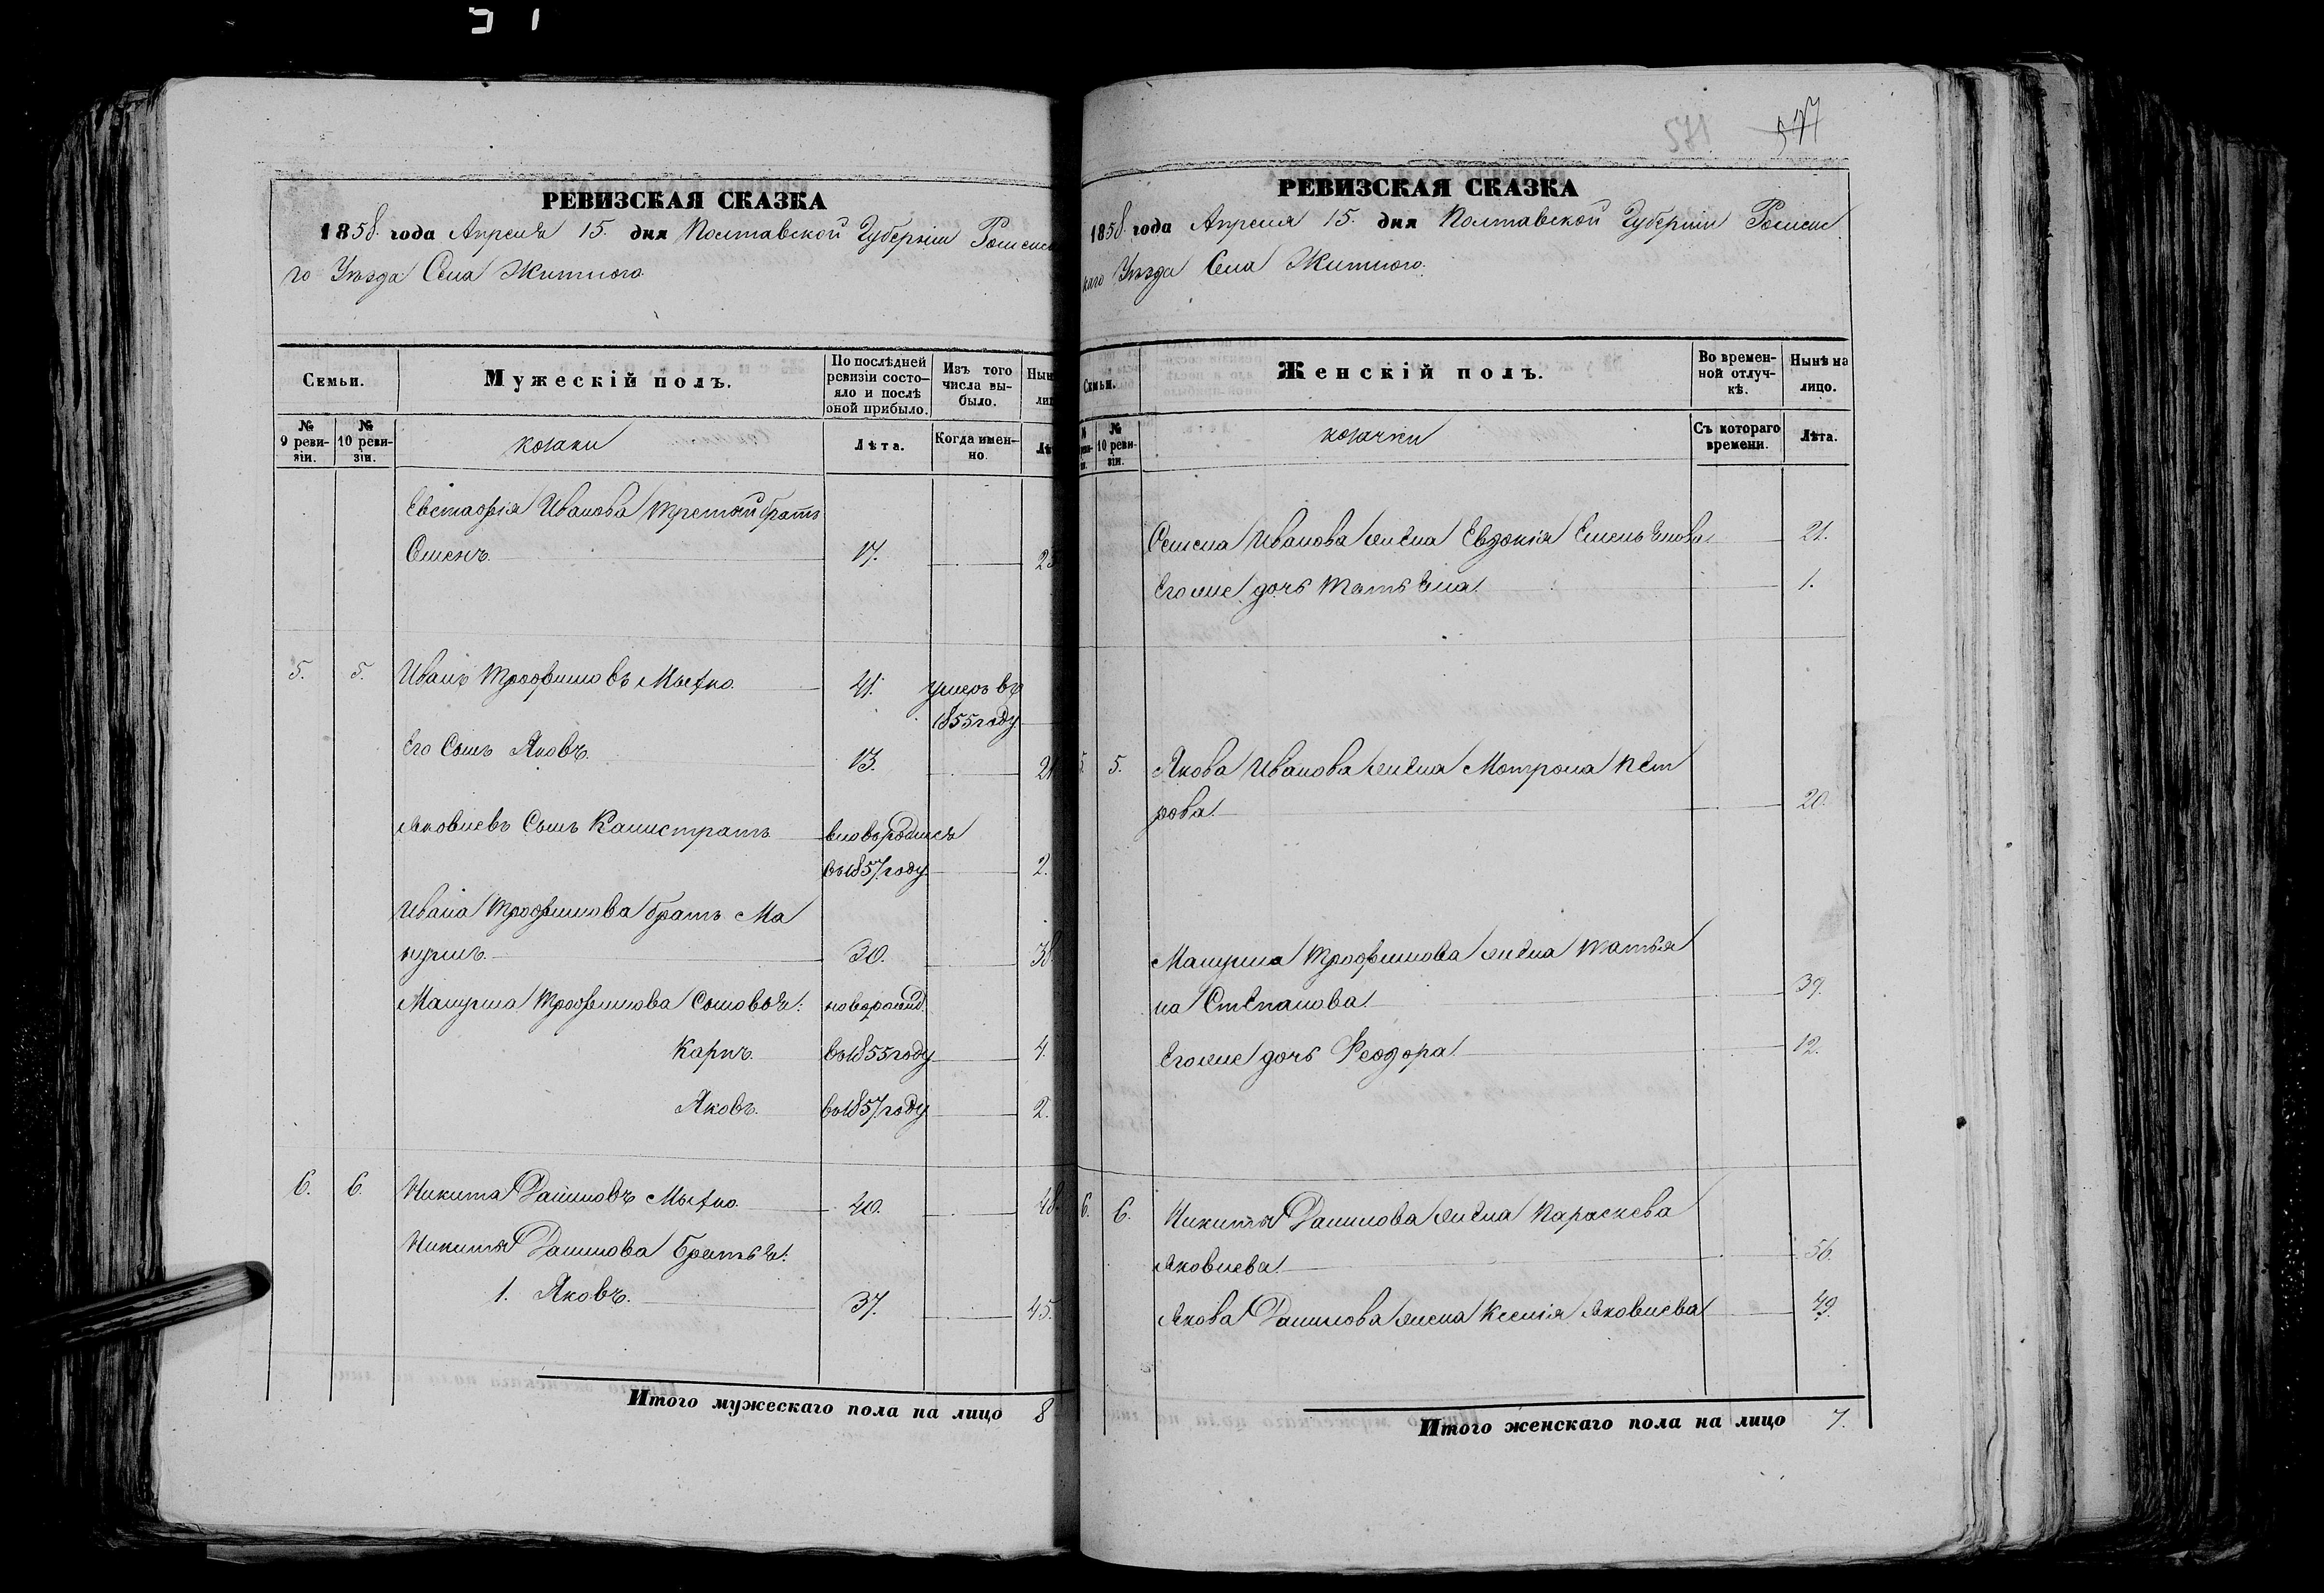 571
РЕВИЗСКАЯ СКАЗКА
1858. года Апреля 15. дня Полтавской Губерніи Роменска
го Уѣзда Села Житного.
Семьи.
Мужескій полъ.
По послѣдней ревизіи состо-
яло и послѣ оной прибыло.
Изъ того числа вы-
было.
№ 9 реви-
зіи.
№ 10 реви-
зіи.
козаки
Лѣта.
Когда имен-
но.
Евстафія Иванова третій братъ
Семенъ. 17.
5. 5. Иванъ Трофимовъ 41. умеръ въ
1855 году
Его Сынъ Яковъ. 13.
Яковлевъ Сынъ Калистратъ вновь родился
въ 1857. году 2.
Ивана Трофимова братъ Ма
нуилъ. 30. 38.
Мануила Трофимова Сыновья: новорожд.
Карпъ. въ 1855 году 4.
Яковъ. въ 1857. году 2.
6. 6. Никита Даниловъ 40. 48.
Никиты Данилова братья:
1. Яковъ. 37. 45.
Итого мужескаго пола на лицо 8
РЕВИЗСКАЯ СКАЗКА
1858. года Апреля 15. дня Полтавской Губерніи Роменс
каго Уѣзда Села Житного.
Семьи.
Женскій полъ.
Во времен-
ной отлуч-
кѣ.
Нынѣ на
лицо.
10 реви-
зіи.
козачки
Съ котораго
времени.
Лѣта.
Семена Иванова жена Евдокія Емельянова 21.
Егоже дочь Татьяна. 1.
5. 5. Якова Иванова жена Мотрона Пет
рова. 20.
Мануила Трофимова жена Татья
на Степанова. 39.
Егоже дочь Феодора. 12.
6. 6. Никиты Данилова жена Параскева
Яковлева. 56.
Якова Данилова жена Ксенія Яковлева 49.
Итого женскаго пола на лицо 7.